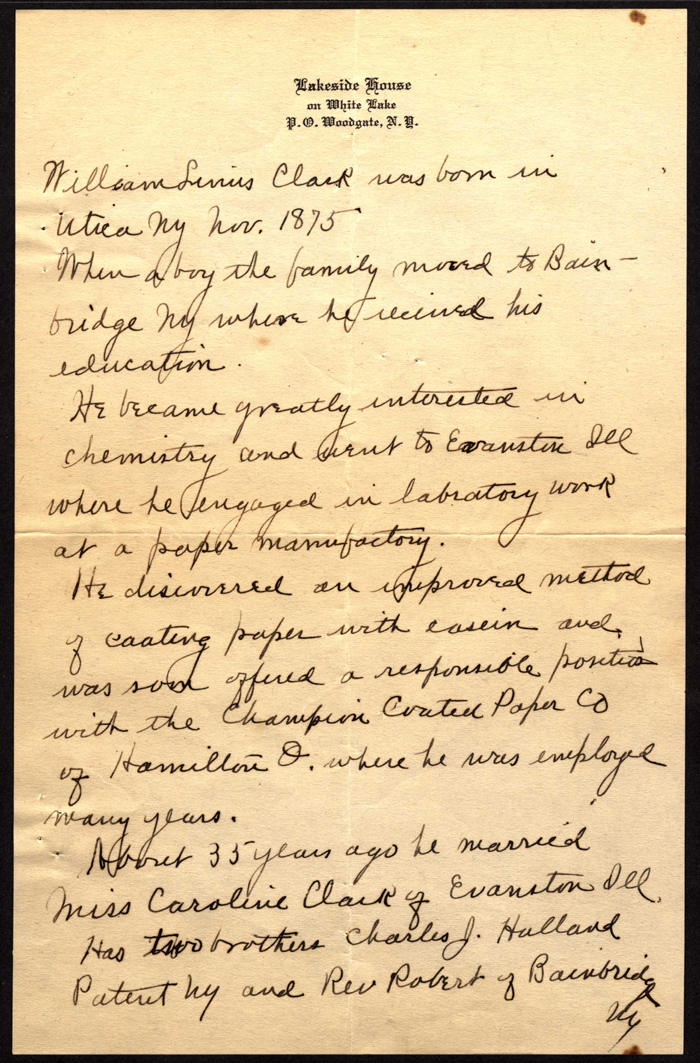 Lakeside House
on White Lake
P.O. Woodgate, N.Y.
William Linius Clark was born in
Utica Ny Nov. 1875
When a boy the family moved to Bain-
bridge Ny where he recieved his
education.
He became greatly interested in
chemistry and went to Evanston Ill
where he engaged in labratory work
at a paper manufactory.
He discovered an improved method
of coating paper with casein and
was soon offered a responsible position
with the Champion Coated Paper Co
of Hamilton O. where he was employed
many years.
About 35 years ago he married
Miss Caroline Clark of Evanston Ill.
Has two brothers Charles J. Holland
Patent Ny and Rev Robert of Bainbridge
Ny